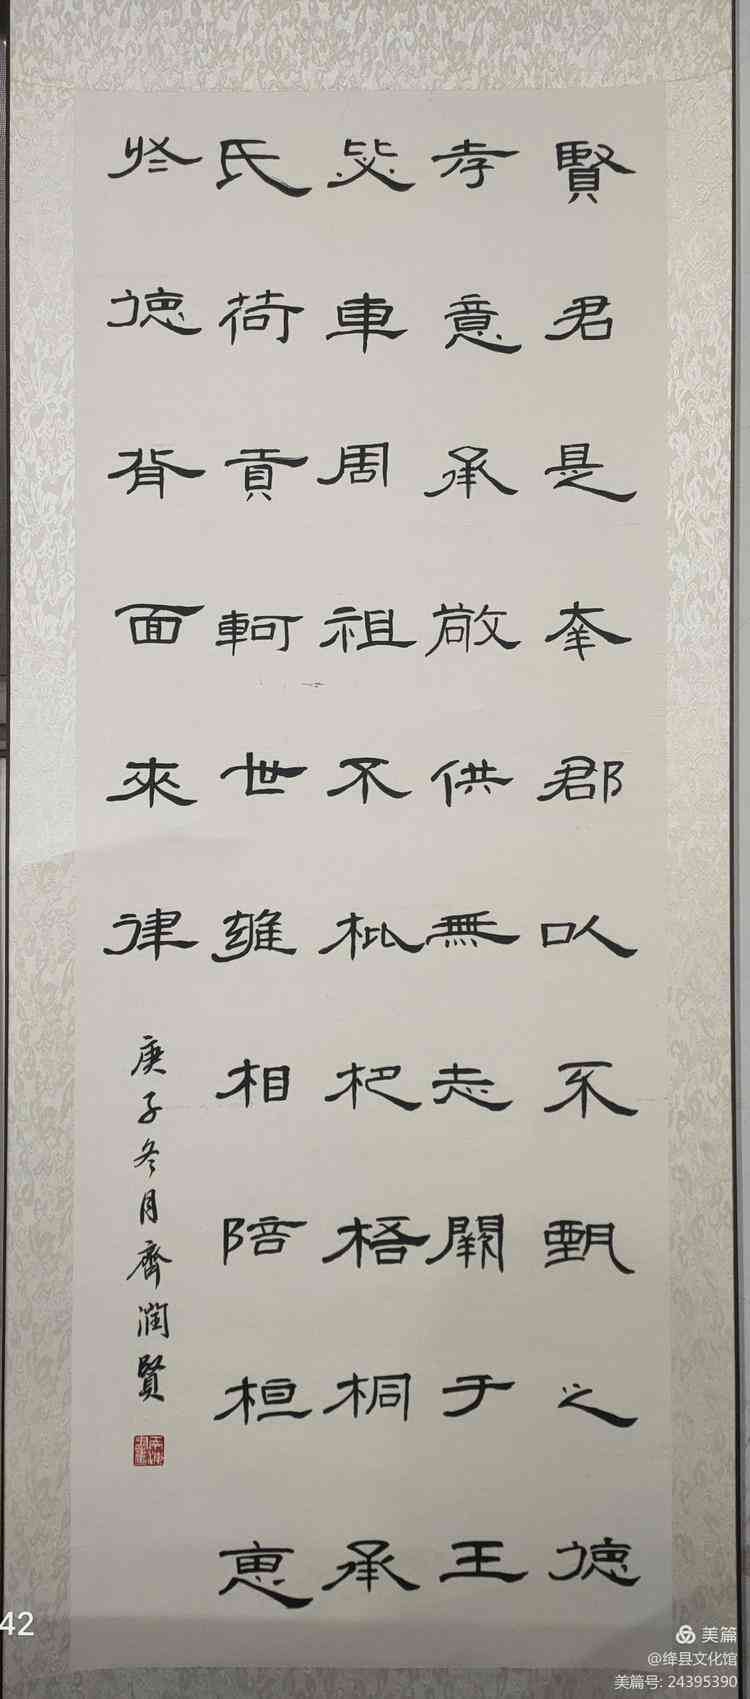 賢君是郡以不之德
孝意承敬供無志闕于王
車周祖不枇杷梧桐承
氏荷貢軻世雒相陪桓恵
德背面來律
庚子冬月齊潤賢
42
美篇
@绛县文化馆
美篇号: 24395390